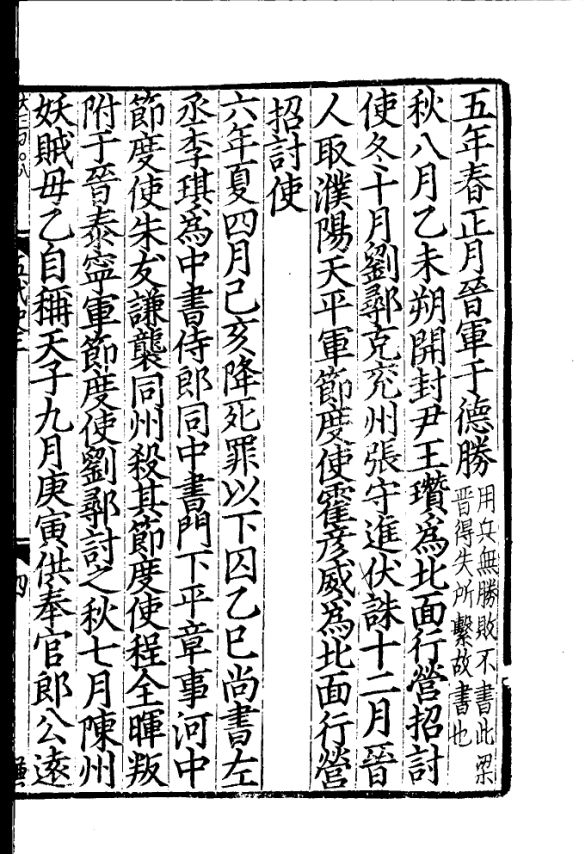 五年春正月晉軍于德勝用兵無勝敗不書此梁晉得失所繫故書也
秋八月乙未朔開封尹王瓚爲北面行營招討
使冬十月劉鄩克兖州張守進伏誅十二月晉
人取濮陽天平軍節度使霍彦威爲北面行營
招討使
六年夏四月己亥降死罪以下囚乙巳尚書左
丞李琪爲中書侍郎同中書門下平章事河中
節度使朱友謙襲同州殺其節度使程全暉叛
附于晉泰寧軍節度使劉鄩討之秋七月陳州
妖賊毋乙自稱天子九月庚寅供奉官郎公遠
四